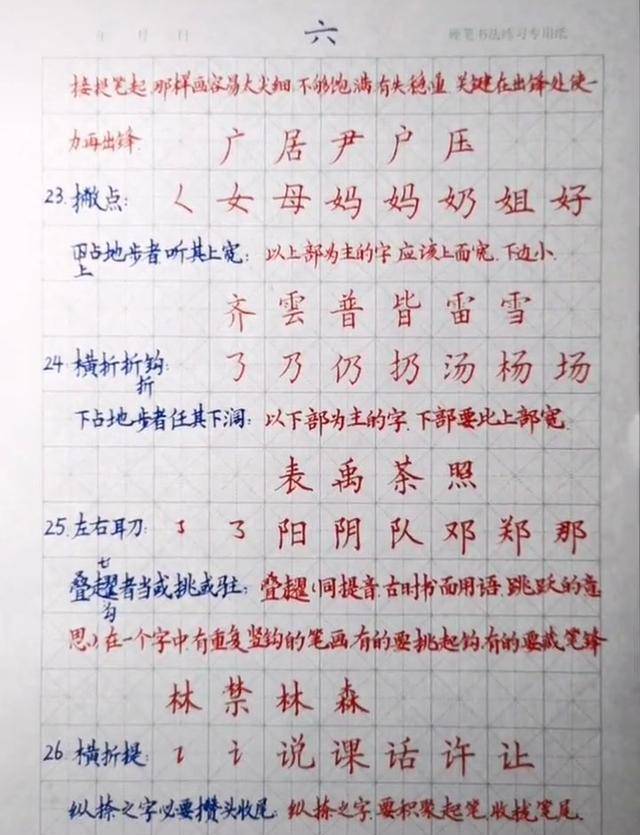 年 月 日 六 硬笔书法练习专用纸
接提笔起,那样画容易太尖细,不够饱满,有失稳重,关键在出锋处使一
力再出锋. 广 居 尹 户 压
23. 撇点: ㄑ 女 母 妈 妈 奶 姐 好
上占地步者,听其上宽: 以上部为主的字,应该上面宽,下边小.
齐 雲 普 皆 雷 雪
24. 横折折折钩: ㇡ 乃 仍 扔 汤 杨 场
下占地步者任其下润: 以下部为主的字,下部要比上部宽.
表 禹 茶 照
25. 左右耳刀: ㇌ 阳 阴 队 邓 郑 那
叠趯者当或挑或驻: 叠趯(同提音,古时书面用语,跳跃的意
七 勾
思)在一个字中,有重复竖钩的笔画,有的要挑起钩,有的要藏笔锋
林 禁 林 森
26. 横折提: ㇊ 讠 说 课 话 许 让
纵捺之字必要攒头收尾: 纵捺之字,要积聚起笔,收拢笔尾.